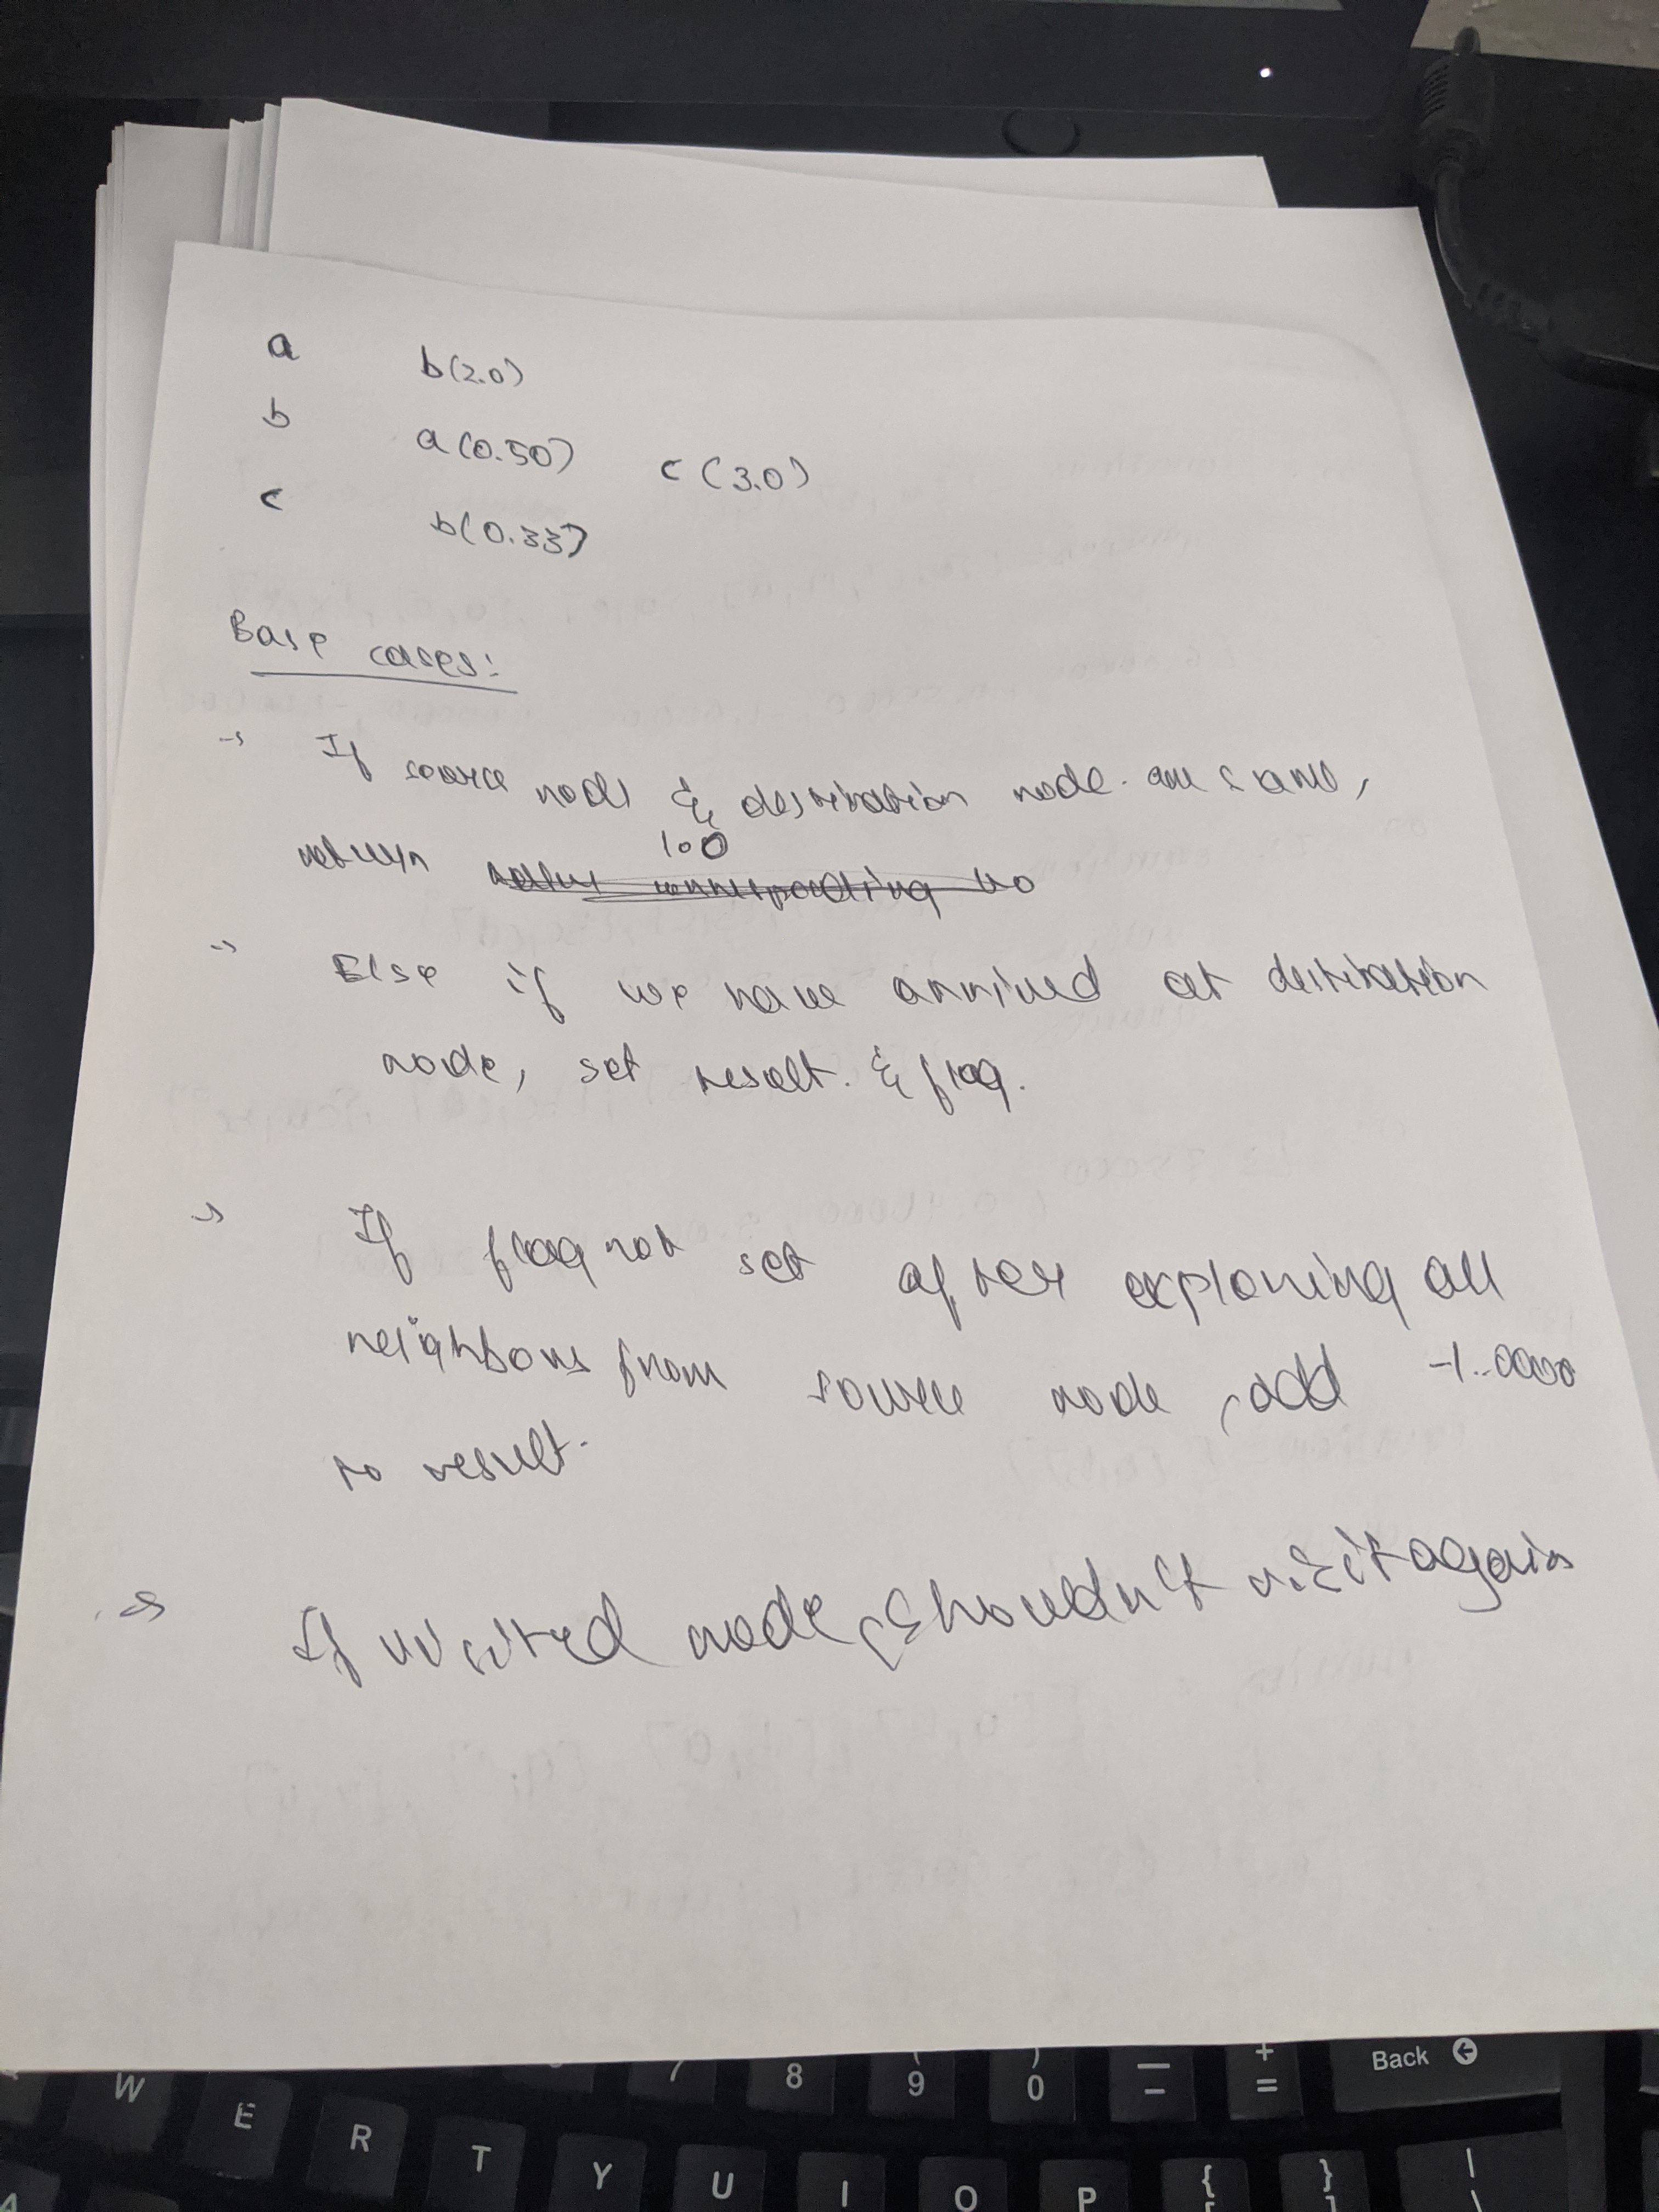 a b(2.0)
b a(0.50) c(3.0)
c b(0.33)
Base cases:
→ If source node & destination node are same,
return 1.0
→ Else if we have arrived at destination
node, set result & flag.
→ If flag not set after exploring all
neighbors from source node, add -1.0000
to result.
→ If visited node, shouldn't visit again
7 8 ( 9 ) 0 — - + = Back
W E R T Y U I O P { [ } ] | \
A